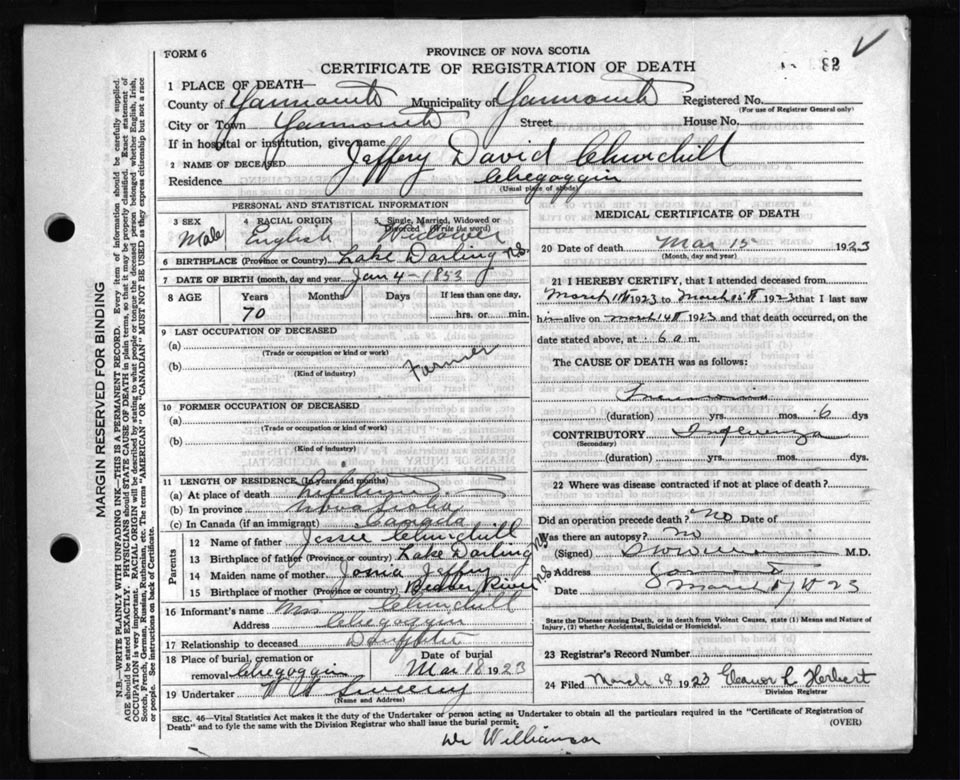 FORM 6
PROVINCE OF NOVA SCOTIA
CERTIFICATE OF REGISTRATION OF DEATH
82
1 PLACE OF DEATH—
County of Yarmouth Municipality of Yarmouth Registered No.
(For use of Registrar General only)
City or Town Yarmouth Street House No.
If in hospital or institution, give name
2 NAME OF DECEASED Jeffery David Churchill
Residence Chegoggin
(Usual place of abode)
PERSONAL AND STATISTICAL INFORMATION
3 SEX Male
4 RACIAL ORIGIN English
5 Single, Married, Widowed or Divorced (Write the word) Widower
6 BIRTHPLACE (Province or Country) Lake Darling N.S.
7 DATE OF BIRTH (month, day and year) Jan 4-1853
8 AGE Years Months Days If less than one day,
70 hrs. or min.
9 LAST OCCUPATION OF DECEASED
(a)
(Trade or occupation or kind of work)
(b) Farmer
(Kind of industry)
10 FORMER OCCUPATION OF DECEASED
(a)
(Trade or occupation or kind of work)
(b)
(Kind of industry)
11 LENGTH OF RESIDENCE (In years and months)
(a) At place of death Lifetime
(b) In province Nova Scotia
(c) In Canada (if an immigrant) Canada
Parents
12 Name of father Jessie Churchill
13 Birthplace of father (Province or country) Lake Darling NS
14 Maiden name of mother Jeffery
15 Birthplace of mother (Province or country) Beaver River NS
16 Informant's name Mrs Churchill
Address Chegoggin
17 Relationship to deceased Daughter
18 Place of burial, cremation or removal Chegoggin
Date of burial Mar 18 1923
19 Undertaker Sweeny
(Name and Address)
MEDICAL CERTIFICATE OF DEATH
20 Date of death Mar 15 1923
(Month, day and year)
21 I HEREBY CERTIFY, that I attended deceased from
March 1923 to March 15th 1923 that I last saw
him alive on March 14th 1923 and that death occurred, on
date stated above, at 6 a m.
The CAUSE OF DEATH was as follows:
Pneumonia
(duration) yrs. mos. 6 dys
CONTRIBUTORY Influenza
(Secondary)
(duration) yrs. mos. dys.
22 Where was disease contracted if not at place of death?
Did an operation precede death? No Date of
Was there an autopsy? No
(Signed) M.D.
Address Yarmouth
Date March 17th 23
State the Disease causing Death, or in death from Violent Causes, state (1) Means and Nature of Injury, (2) whether Accidental, Suicidal or Homicidal.
23 Registrar's Record Number
24 Filed March 18 1923 Eleanor L Herbert
Division Registrar
SEC. 46—Vital Statistics Act makes it the duty of the Undertaker or person acting as Undertaker to obtain all the particulars required in the "Certificate of Registration of
Death" and to fyle the same with the Division Registrar who shall issue the burial permit.
(OVER)
Dr Williamson
MARGIN RESERVED FOR BINDING
N.B.—WRITE PLAINLY WITH UNFADING INK—THIS IS A PERMANENT RECORD. Every item of information should be carefully supplied.
AGE should be stated EXACTLY. PHYSICIANS should STATE CAUSE OF DEATH in plain terms, so that it may be properly classified. Exact statement of
OCCUPATION is very important. RACIAL ORIGIN will be described by stating to what people or tongue the deceased person belonged whether English, Irish,
Scotch, French, German, Russian, Ruthenian, etc. The terms "AMERICAN" OR "CANADIAN" MUST NOT BE USED as they express citizenship but not a race
or people. See instructions on back of Certificate.